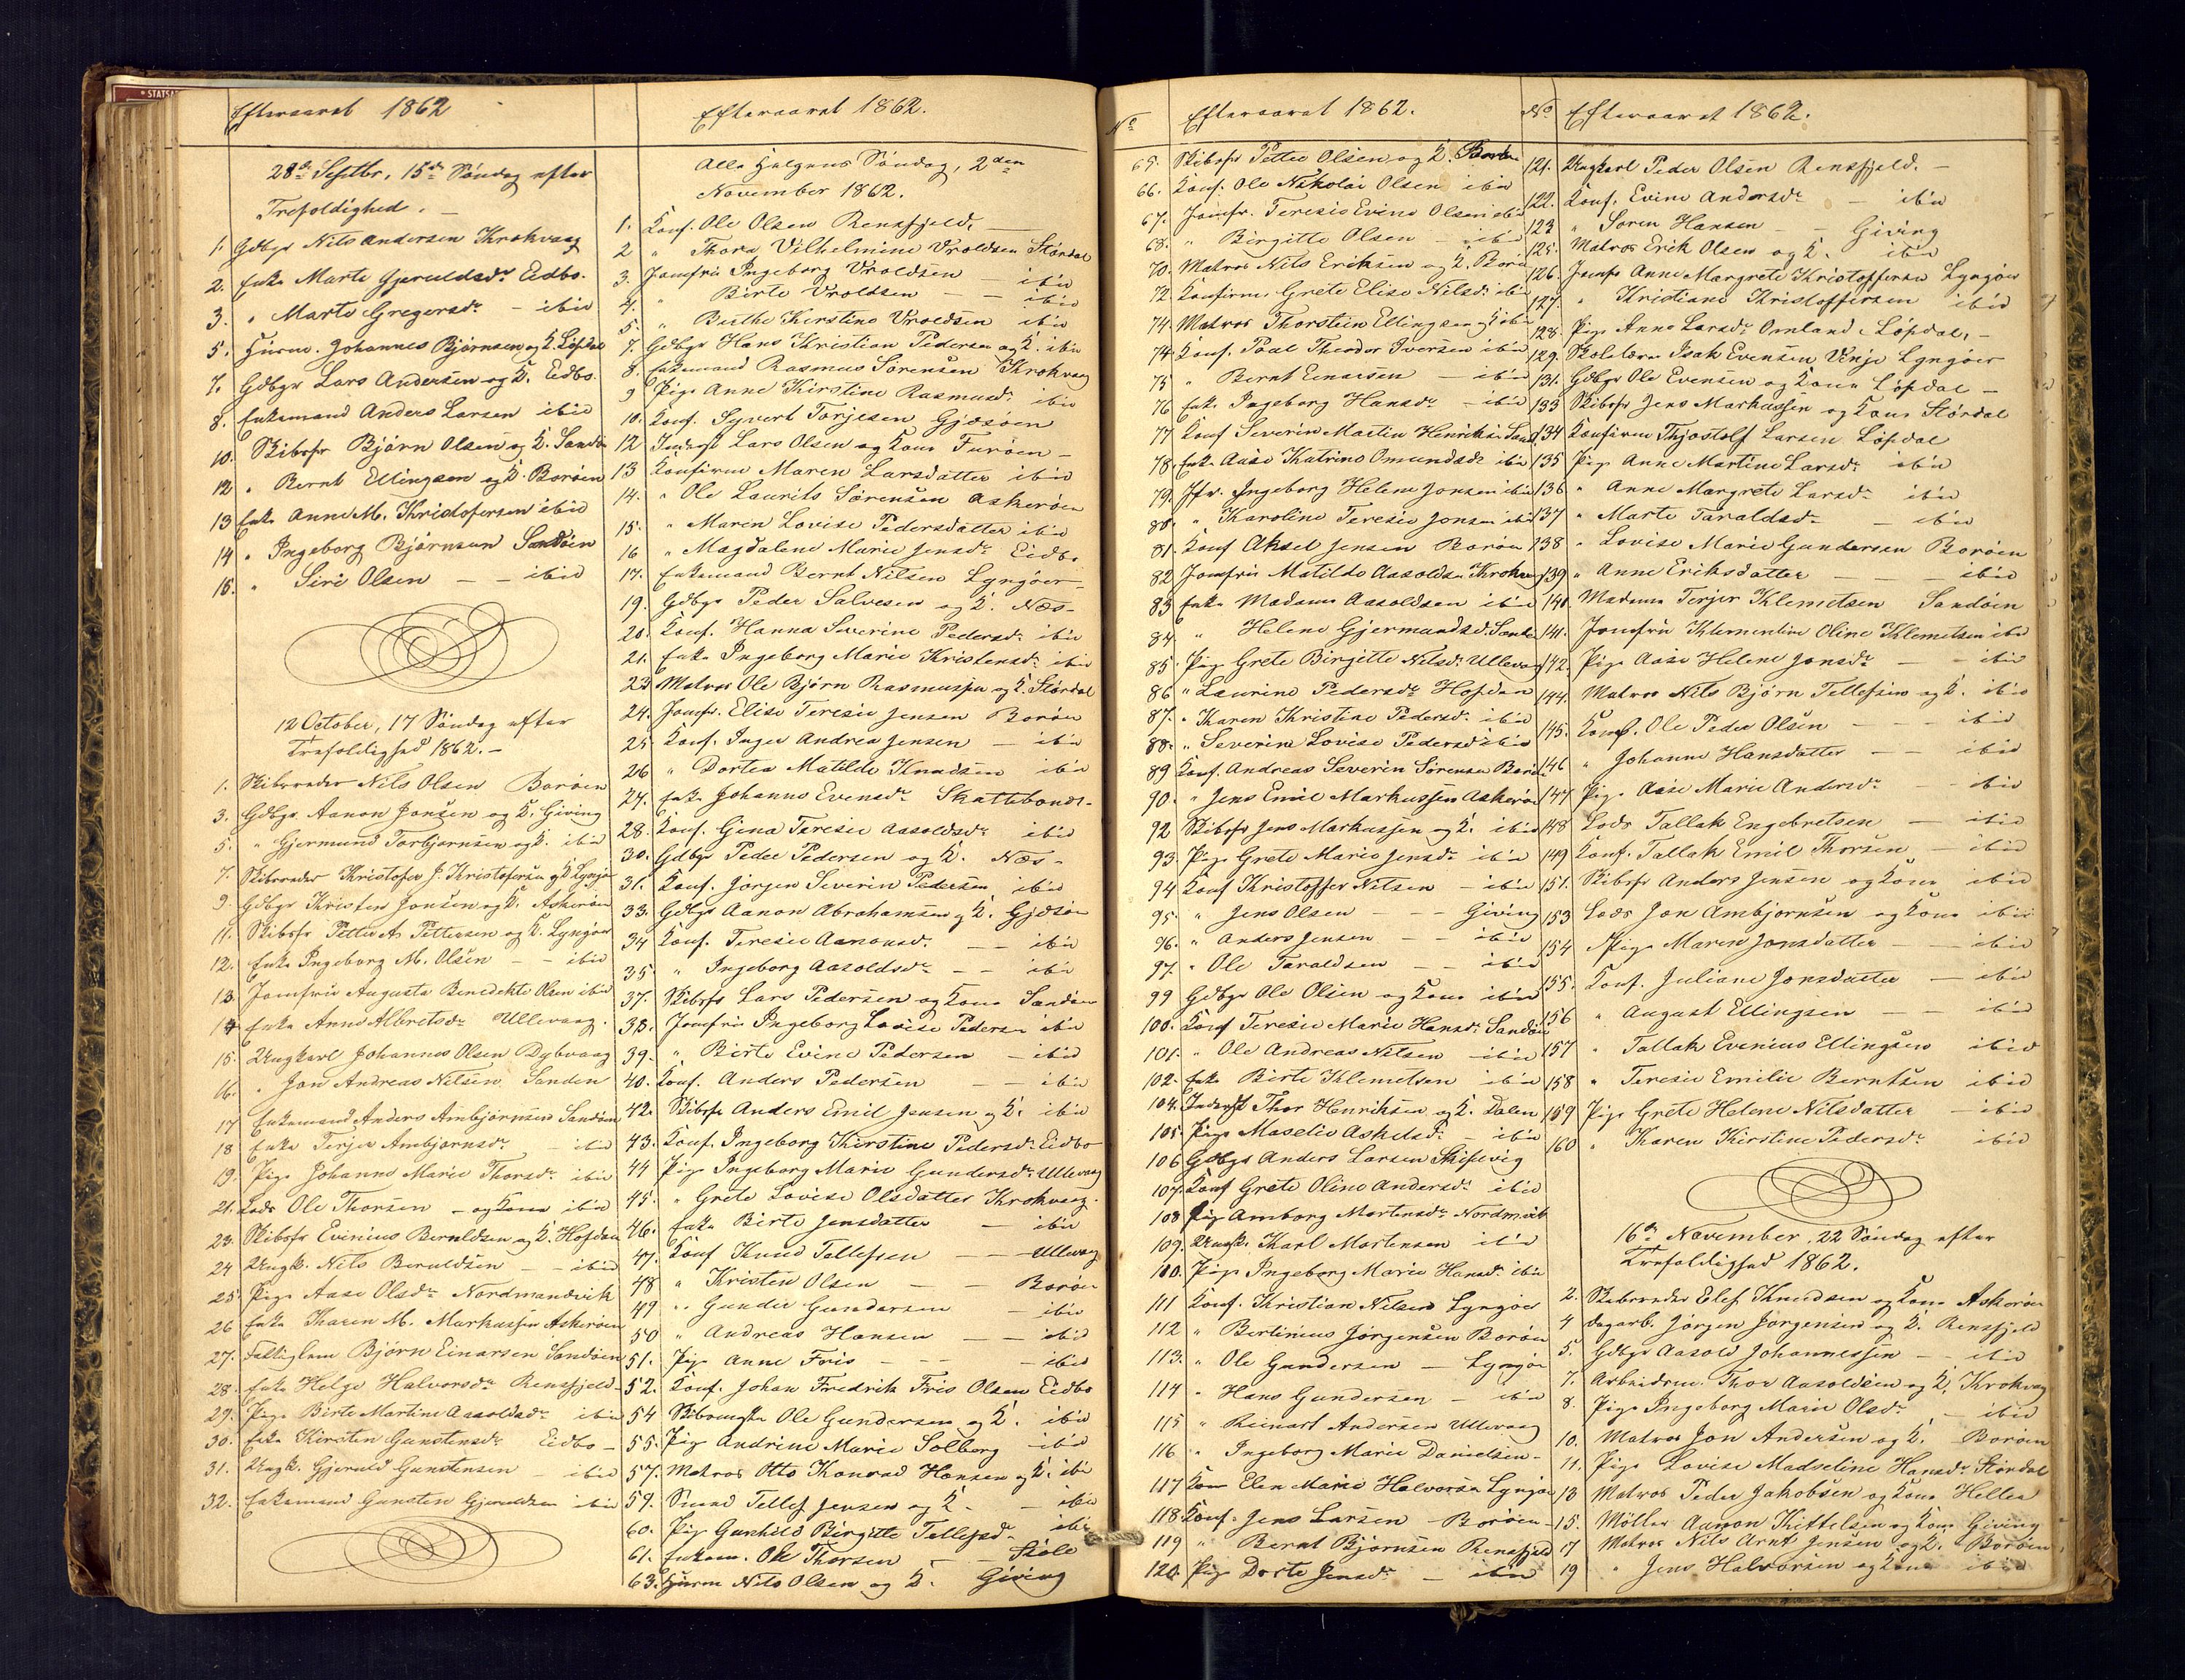 * STATSA
Efteraaret 1862
28de Septbr. 15de Søndag efter
Trefoldighed. –
1. Gdbgr Nils Andersen Krokvaag
2. Enke Marte Gjeruldsdr. Eidbo.
3. " Marte Gregersdr. – ibid
5. Huusm. Johannes Bjørnsen og K. Løfdal
7. Gdbgr Lars Andersen og K. Eidbo.
8. Enkemand Anders Larsen ibid
10. Skibsfr Bjørn Olsen og K. Sandøn
12 " Bernt Ellingsen og K. Borøen
13 Enke Anne M. Kristofersen ibid
14 " Ingeborg Bjørnsen Sandøen
15. " Siri Olsen – – ibid
12 October, 17 Søndag efter
Trefoldighed 1862. –
1. Skibsreder Nils Olsen Borøen
3. Gdbgr. Aanon Jonsen og K. Giving
5. " Gjermund Torbjørnsen og K. ibid
7. Skibsreder Kristofer J. Kristofersen og K Lyngør
9. Gdbgr Kristen Jonsen og K. Askerøen
11. Skibsfr Petter A. Pettersen og K. Lyngøer
12. Enke Ingeborg M. Olsen – – ibid
13. Jomfru Augusta Benedikte Olsen ibid
14 Enke Anne Albretsdr Ullevaag.
15. Ungkarl Johannes Olsen Dybvaag
16. " Jon Andreas Nilsen Sanden
17 Enkemand Anders Ambjørnsen Sandøen
18 Enke Terjer Ambjørnsdr. – ibid
19. Pige Johanne Marie Thorsdr. ibid
21. Lods Ole Thorsen – og Kone ibid
23. Skibsfr Evinius Beruldsen og K. Hofdan
24 Ungk. Nils Beruldsen – – ibid
25 Pige Aase Olsdr Nordmandvik
26 Enke Karen M. Markussen Askerøen
27. Fattiglem Bjørn Einarsen Sandøen
28. Enke Helge Halvorsdr Rensfjeld –
29. Pige Birte Martine Aasoldsdr ibid
30. Enke Kirsten Gunstensdr Eidbo –
31. Ungk. Gjeruld Gunstensen – ibid
32. Enkemand Gunsten Gjeruldsen ibid
Efteraaret 1862.
Alle Helgens Søndag, 2den
November 1862.
1. Konf. Ole Olsen Rensfjeld, –
2 " Thora Vilhelmine Vroldsen Stordal
3. Jomfru Ingeborg Vroldsen – ibid
4. " Birte Vroldsen – – ibid
5. " Birthe Kirstine Vroldsen ibid
7. Gdbgr Hans Kristian Pedersen og K. ibid
8. Enkemand Rasmus Sørensen Krokvaag
9 Pige Anne Kirstine Rasmusdr ibid
10. Konf. Syvert Torjesen Gjesøen
12 Inderst Lars Olsen og Kone Furøen –
13 Konfirm Maren Larsdatter ibid
14. " Ole Laurits Sørensen Askerøen
15. " Maren Lovise Pedersdatter ibid
16 " Magdalene Marie Jensdr Eidbo
17. Enkemand Bernt Nilsen Lyngøer
19. Gdbgr Peder Salvesen og K. Næs –
20. Konf. Hanna Severine Pedersdr. ibid
21. Enke Ingeborg Marie Kristensdr. ibid
23 Matros Ole Bjørn Rasmussen og K. Stordal
24. Jomfr. Elise Teresie Jensen Borøen
25 Konf. Inger Andrea Jensen – ibid
26 " Dortea Matilde Knudsen ibid
27. Enke Johanne Evensdr. Skattebonde –
28. Konf. Gina Teresie Aasoldsdr ibid
30. Gdbgr Peder Pedersen og K. Næs –
31. Konf. Jørgen Severin Pedersen ibid
33. Gdbgr Aanon Abrahamsen og K. Gjesøn
34 Konf. Teresie Aanonsd. – – ibid
35. " Ingeborg Aasoldsdr – – ibid
37. Skibsfr Lars Pedersen og Kone Sandøn
38. Jomfru Ingeborg Lovise Pedersen ibid
39. " Birte Evine Pedersen – ibid
40. Konf. Anders Pedersen – – ibid
42. Skibsfr Anders Emil Jensen og K. ibid
43. Konf. Ingeborg Kirstine Pedersdr. Eidbo
44 Pige Ingeborg Marie Gundersdr. Ullevaag
45. " Grete Lovise Olsdatter Krokvaag.
46. Enke Birte Jensdatter – ibid
47. Konf Knud Tallefsen – – Ullevaag
48 " Kristen Olsen – – Borøen
49 " Gunder Gundersen – ibid
50 " Andreas Hansen – – ibid
51. Pige Anne Friis – – – ibid
52. Konf. Johan Fredrik Friis Olsen Eidbo
54 Ole Gundersen og K. ibid
55. Pige Andrine Marie Solberg ibid
57. Matros Otto Konrad Hansen og K. ibid
59. Smed Tellef Jensen og K – – ibid
60. Pige Gunhild Birgitte Tellefsdr. ibid
61. Enkem. Ole Thorsen – –
63. Huusm Nils Olsen og K. Giving
No Efteraaret 1862.
65. Skibsfr Petter Olsen og K. Borøen
66. Konf. Ole Nikolai Olsen ibid
67. Jomfr. Teresie Evine Olsen ibid
68. " Birgitte Olsen – ibid
70. Matros Nils Eriksen og K. Borøen
72 Konfirm. Grete Elise Nilsdr. ibid
74. Matros Thorstein Ellingsen og K ibid
74. Konf. Paal Theodor Iversen ibid
75 " Bernt Einarsen – ibid
76 Enke Ingeborg Hansdr – ibid
77 Konf Severin Martin Henriksen Sand
78. Enke Aase Katrine Omundsdr ibid
79. Jfr. Ingeborg Helene Jonsen ibid
80. " Karoline Teresie Jonsen ibid
81. Konf Aksel Jensen Borøen
82 Jomfru Matilde Aasoldsen Krokvaag
83 Enke Madame Aasoldsen ibid
84. " Helene Gjermundsd. Sande
85. Pige Grete Birgitte Nilsdr. Ullevaag
86 " Laurine Pedersdr Hofdan
87. " Karen Kristine Pedersdr. ibid
88. " Severine Lovise Pedersdr ibid
89 Konf. Andreas Severin Sørensen Borøn
90. " Jens Emil Markussen Askerøen
92 Skibsfr Jens Markussen og K. ibid
93. Pige Grete Marie Jensdr ibid
94 Konf Kristoffer Nilsen – ibid
95. " Jens Olsen – – – Giving
96. " Anders Jensen – – ibid
97. " Ole Taraldsen – – ibid
99 Gdbgr Ole Olsen og Kone ibid
100. Konf Teresie Marie Hansdr. Sandøen
101. " Ole Andreas Nilsen – ibid
102. Enke Birte Klemetsen ibid
104. Inderst Thor Henriksen og K. Dalen
105. Pige Maselie Askelsdr. – ibid
106 Gdbgr Anders Larsen Skifsvig
107. Konf Grete Oline Andersdr ibid
108 Pige Amborg Mortensdr Nordmvik
109. Ungk. Karl Mortensen ibid
110. Pige Ingeborg Marie Hansdr. ibid
111 Konf. Kristian Nilsen Lyngøer
112 " Bertinius Jørgensen Borøen
113. " Ole Gundersen – Lyngør
114 " Hans Gundersen – ibid
115 " Reinart Andersen Ullevaag
116. " Ingeborg Marie Danielsen –
117 Kone Elen Marie Halvorsen Lyngør
118 Konf. Jens Larsen – Borøen –
119 " Bernt Bjørnsen Rensfjeld
120. Pige Dorte Jensdr. – ibid
No Efteraaret 1862.
121. Ungkarl Peder Olsen Rensfjeld. –
122. Konf. Evine Andersdr – ibid
123 " Søren Hansen – – Giving
125. Matros Erik Olsen og K. ibid
126. Jomfr Anne Margrete Kristoffersen Lyngøer
127. " Kristiane Kristoffersen ibid
128. Pige Anne Larsdr Omland Løfdal. –
129. Skolelærer Isak Evensen Vinje Lyngøer
131. Gdbgr Ole Evensen og Kone Løfdal –
133 Skibsfr Jens Markussen og Kone Stordal
134 Konfirm Thjostolf Larsen Løfdal
135 Pige Anne Martine Larsdr. ibid
136 " Anne Margrete Larsdr. ibid
137 " Marte Taraldsdr – ibid
138 " Lovise Marie Gundersen Borøen
139 " Anne Eriksdatter – – – ibid
140. Madame Terjer Klemetsen Sandøen
141. Jomfru Klementine Oline Klemetsen ibid
142. Pige Aase Helene Jonsdr – – ibid
144 Matros Nils Bjørn Tellefsen og K. ibid
145. Konf. Ole Peder Olsen – – – ibid
146 " Johanne Hansdatter – – ibid
147 Pige Aase Marie Andersdr – ibid
148 Lods Tallak Engebretsen – ibid
149 Konf. Tallak Emil Thorsen – ibid
151. Skibsfr Anders Jensen og Kone ibid
153 Lods Jon Ambjørnsen og Kone ibid
154 Pige Maren Jonsdatter – – ibid
155. Konf. Juliane Jonsdatter – ibid
156 " August Ellingsen – – ibid
157 " Tallak Evenius Ellingsen ibid
158 " Teresie Emilie Berntsen ibid
159 Pige Grete Helene Nilsdatter – ibid
160 " Karen Kirstine Pedersdr. ibid
16de November. 22 Søndag efter
Trefoldighed 1862.
2. Skibsreder Elef Knudsen og Kone Askerøen
4 Dagarb. Jørgen Jørgensen og K. Rensfjeld
5. Gdbgr Aasold Johannessen – – ibid
7. Arbeidsm. Thor Aasoldsen og K. Krokvag
8. Pige Ingeborg Marie Olsdr. – ibid
10. Matros Jon Andersen og K. Borøen
11. Pige Lovise Madseline Hansdr. Stordal
13 Matros Peder Jakobsen og Kone Hellea
15. Møller Aanon Kittelsen og Kone Giving
17 Matros Nils Arnt Jensen og K. Borøen
19 " Jens Halvorsen og Kone ibid